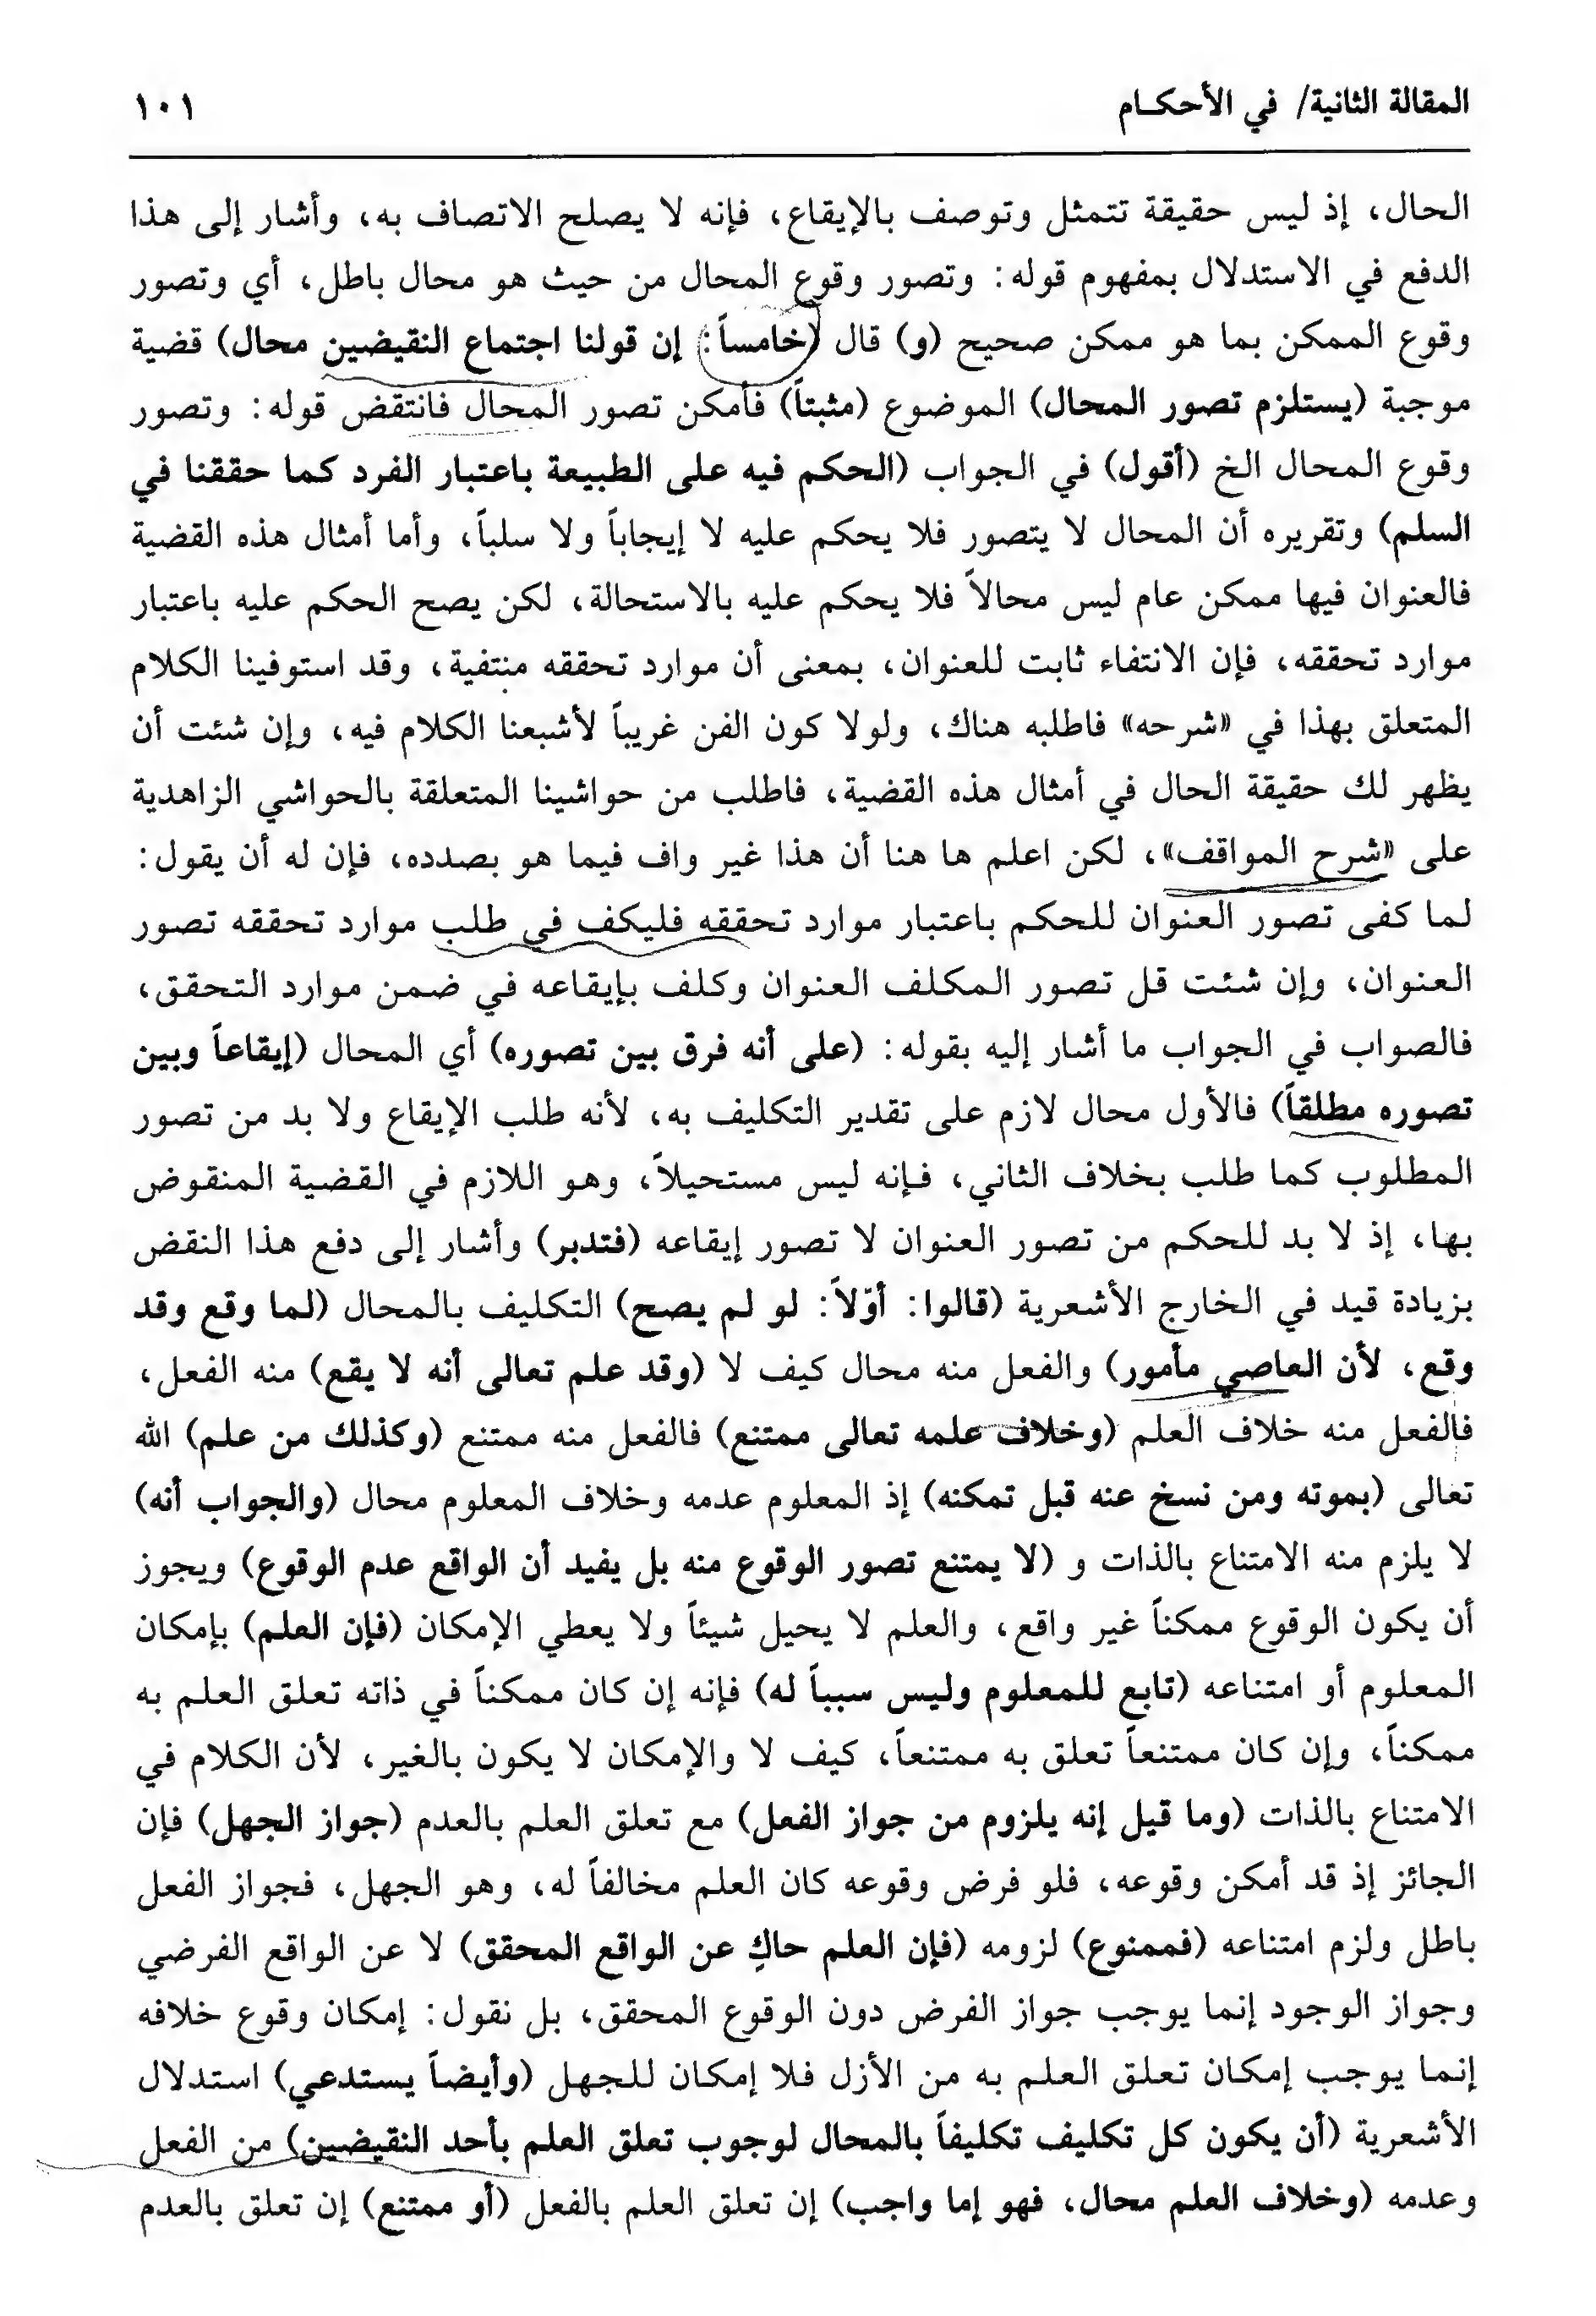 المقالة الثانية/ في الأحكـام ١٠١
الحال، إذ ليس حقيقة تتمثل وتوصف بالإيقاع، فإنه لا يصلح الاتصاف به، وأشار إلى هذا
الدفع في الاستدلال بمفهوم قوله: وتصور وقوع المحال من حيث هو محال باطل، أي وتصور
وقوع الممكن بما هو ممكن صحيح (و) قال (خامساً: إن قولنا اجتماع النقيضين محال) قضية
موجبة (يستلزم تصور المحال) الموضوع (مثبتاً) فأمكن تصور المحال فانتقض قوله: وتصور
وقوع المحال الخ (أقول) في الجواب (الحكم فيه على الطبيعة باعتبار الفرد كما حققنا في
السلم) وتقريره أن المحال لا يتصور فلا يحكم عليه لا إيجاباً ولا سلباً، وأما أمثال هذه القضية
فالعنوان فيها ممكن عام ليس محالاً فلا يحكم عليه بالاستحالة، لكن يصح الحكم عليه باعتبار
موارد تحققه، فإن الانتفاء ثابت للعنوان، بمعنى أن موارد تحققه منتفية، وقد استوفينا الكلام
المتعلق بهذا في «شرحه» فاطلبه هناك، ولولا كون الفن غريباً لأشبعنا الكلام فيه، وإن شئت أن
يظهر لك حقيقة الحال في أمثال هذه القضية، فاطلب من حواشينا المتعلقة بالحواشي الزاهدية
على «شرح المواقف»، لكن اعلم ها هنا أن هذا غير واف فيما هو بصدده، فإن له أن يقول:
لما كفى تصور العنوان للحكم باعتبار موارد تحققه فليكف في طلب موارد تحققه تصور
العنوان، وإن شئت قل تصور المكلف العنوان وكلف بإيقاعه في ضمن موارد التحقق،
فالصواب في الجواب ما أشار إليه بقوله: (على أنه فرق بين تصوره) أي المحال (إيقاعاً وبين
تصوره مطلقاً) فالأول محال لازم على تقدير التكليف به، لأنه طلب الإيقاع ولا بد من تصور
المطلوب كما طلب بخلاف الثاني، فإنه ليس مستحيلاً، وهو اللازم في القضية المنقوض
بها، إذ لا بد للحكم من تصور العنوان لا تصور إيقاعه (فتدبر) وأشار إلى دفع هذا النقض
بزيادة قيد في الخارج الأشعرية (قالوا: أوّلاً: لو لم يصح) التكليف بالمحال (لما وقع وقد
وقع، لأن العاصي مأمور) والفعل منه محال كيف لا (وقد علم تعالى أنه لا يقع) منه الفعل،
فالفعل منه خلاف العلم (وخلاف علمه تعالى ممتنع) فالفعل منه ممتنع (وكذلك من علم) الله
تعالى (بموته ومن نسخ عنه قبل تمكنه) إذ المعلوم عدمه وخلاف المعلوم محال (والجواب أنه)
لا يلزم منه الامتناع بالذات و (لا يمتنع تصور الوقوع منه بل يفيد أن الواقع عدم الوقوع) ويجوز
أن يكون الوقوع ممكناً غير واقع، والعلم لا يحيل شيئاً ولا يعطي الإمكان (فإن العلم) بإمكان
المعلوم أو امتناعه (تابع للمعلوم وليس سبباً له) فإنه إن كان ممكناً في ذاته تعلق العلم به
ممكناً، وإن كان ممتنعاً تعلق به ممتنعاً، كيف لا والإمكان لا يكون بالغير، لأن الكلام في
الامتناع بالذات (وما قيل إنه يلزوم من جواز الفعل) مع تعلق العلم بالعدم (جواز الجهل) فإن
الجائز إذ قد أمكن وقوعه، فلو فرض وقوعه كان العلم مخالفاً له، وهو الجهل، فجواز الفعل
باطل ولزم امتناعه (فممنوع) لزومه (فإن العلم حاكٍ عن الواقع المحقق) لا عن الواقع الفرضي
وجواز الوجود إنما يوجب جواز الفرض دون الوقوع المحقق، بل نقول: إمكان وقوع خلافه
إنما يوجب إمكان تعلق العلم به من الأزل فلا إمكان للجهل (وأيضاً يستدعي) استدلال
الأشعرية (أن يكون كل تكليف تكليفاً بالمحال لوجوب تعلق العلم بأحد النقيضين) من الفعل
وعدمه (وخلاف العلم محال، فهو إما واجب) إن تعلق العلم بالفعل (أو ممتنع) إن تعلق بالعدم